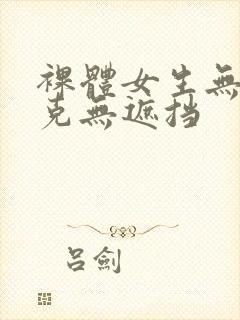 裸體女生無
克無遮挡
吕劍